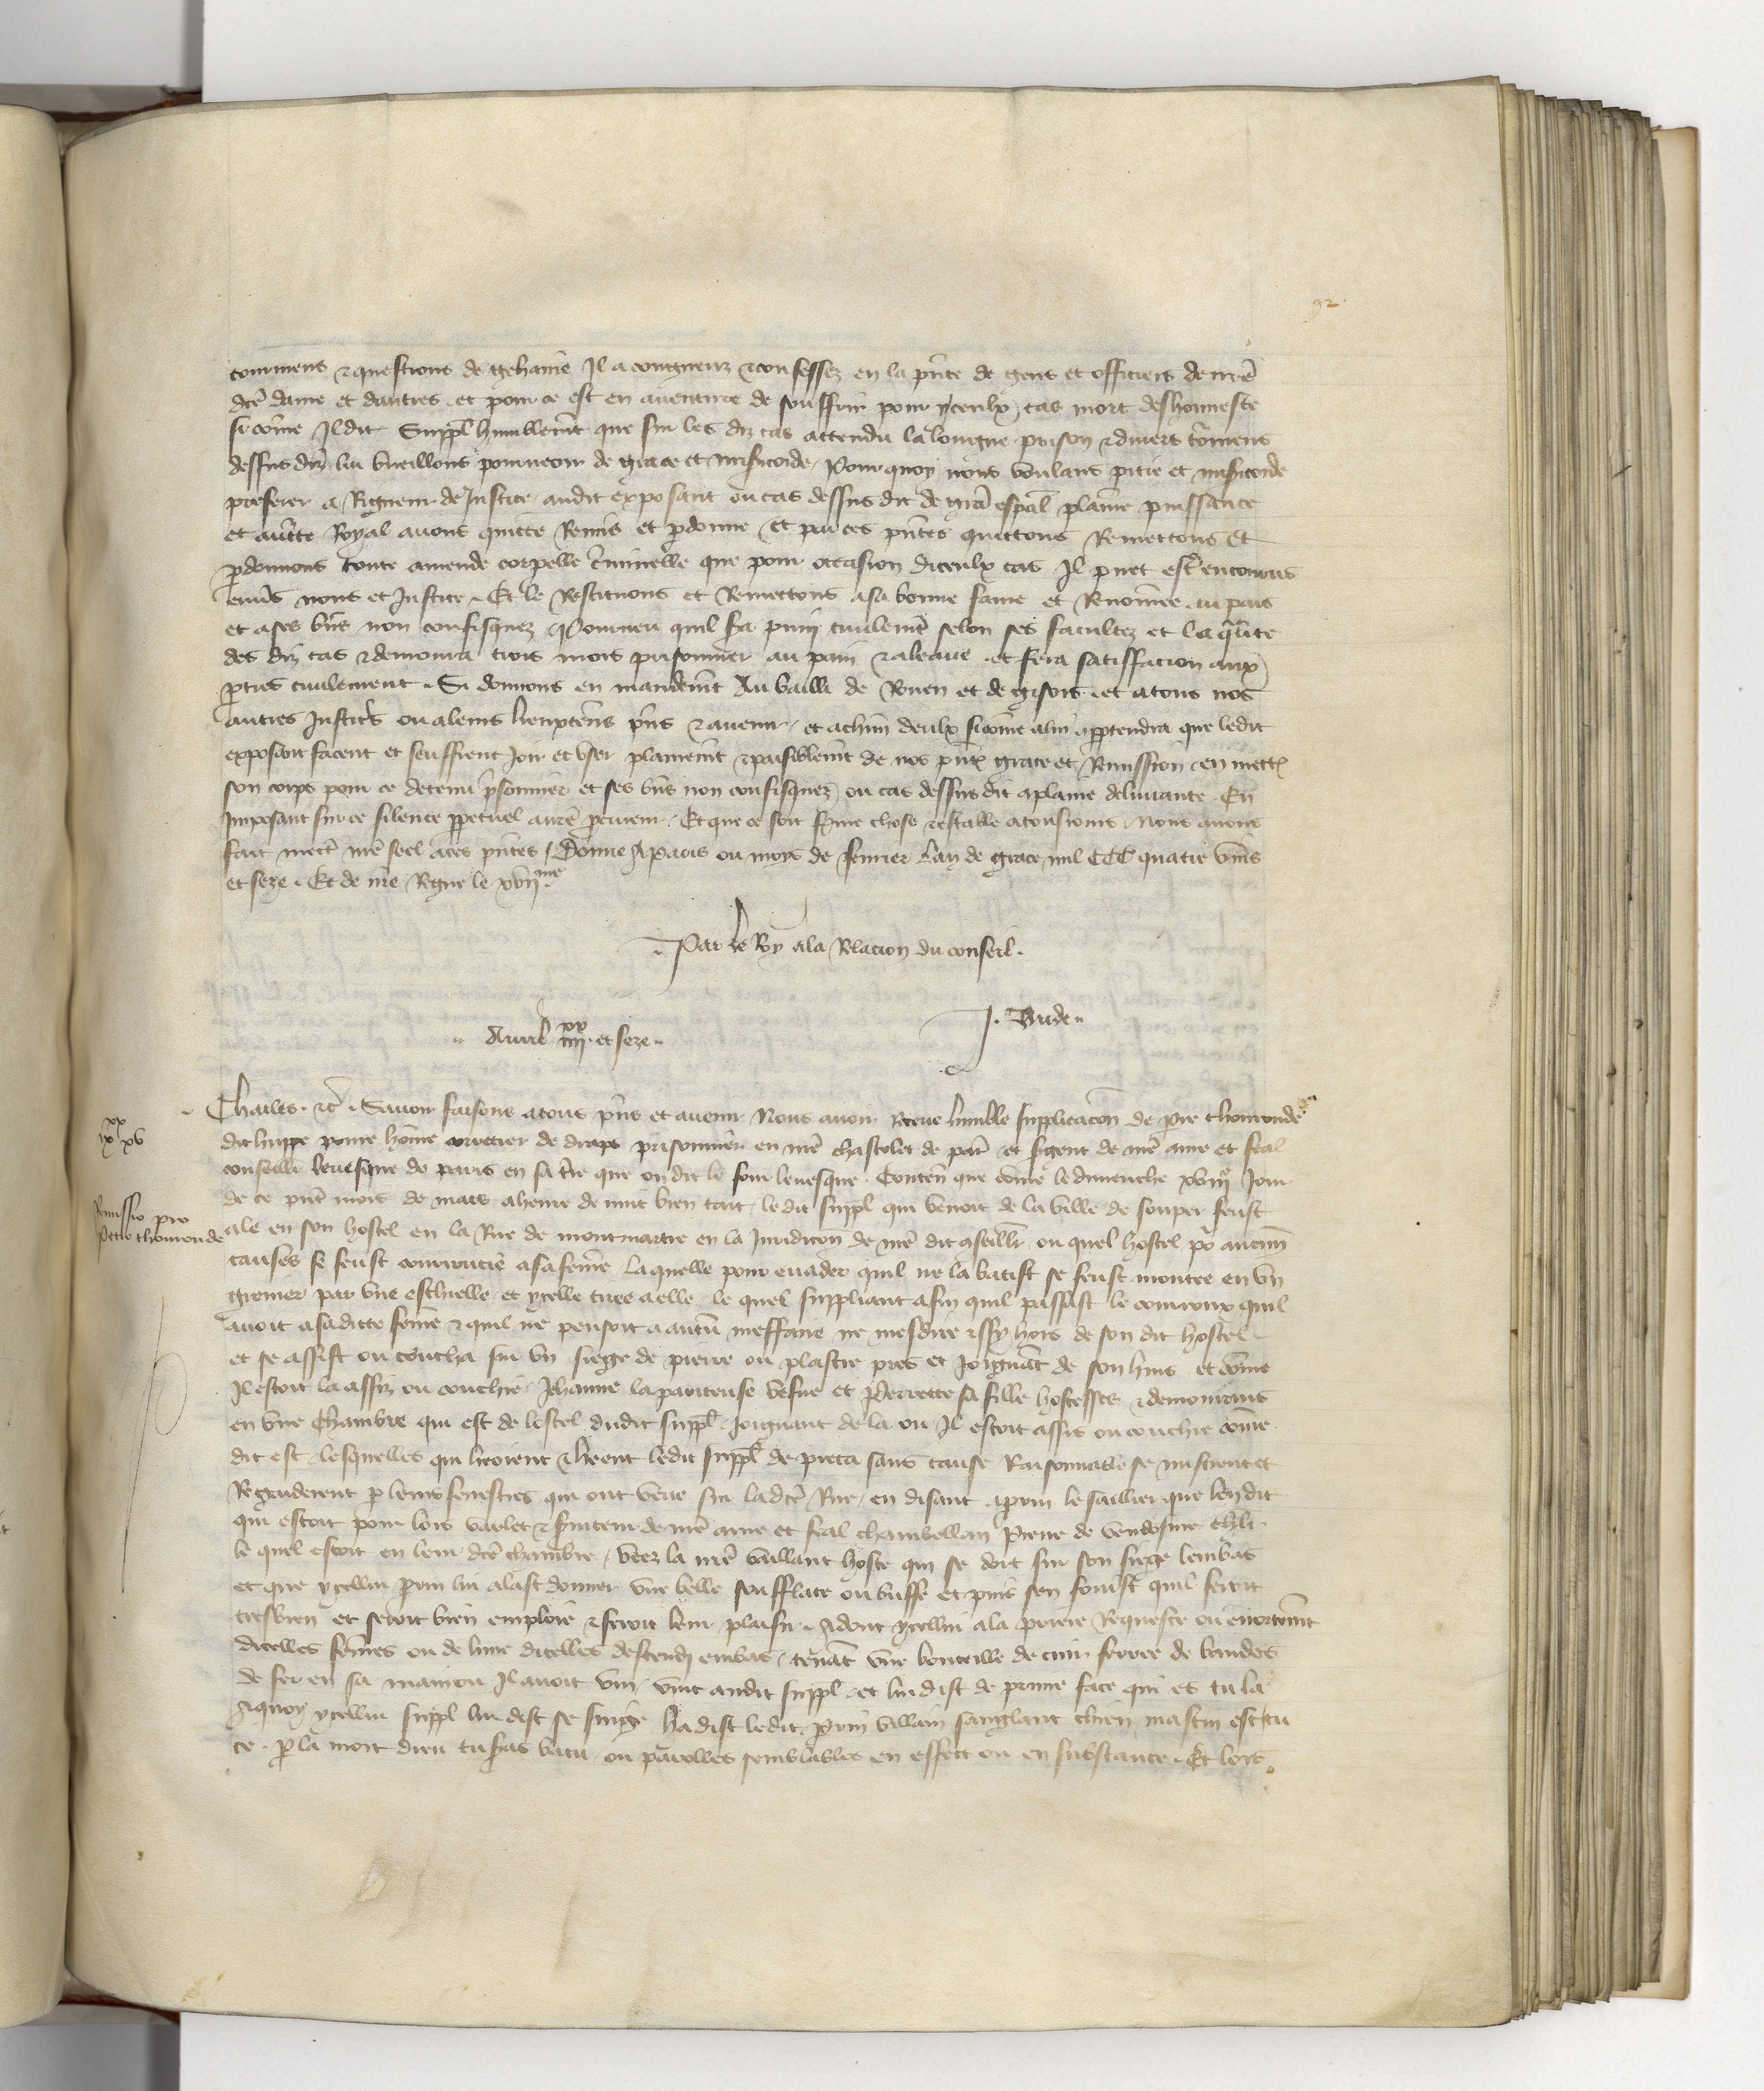 92
tourmens et questions de gehaine Il a congneuz et confessez en la pnce de gens et officiers de nrē
dcē dame et dautres et pour ce est en aventure de souffrir pour yceulx cas mort deshonneste
si cōme Il dit Suppl humblemēt que sur les diz cas attendu la longue prison et divers tōrmens
dessus diz lui vueillons pourveoir de grace et miscorde Pour quoy nous voulans pitie et miscorde
preferer a Rigueur de Justice audit exposant ou cas dessus dit de grā espāl plaine puissance
et aucte Royal avons quicte Remis et pdonne Et par ces pntes quittons Remettons Et
pdonnons toute amende corpelle criminelle que pour occasion diceulx cas Il puet estr encouru
envs nous et Justice Et le Restituons et Remettons a sa bonne fame et Renōmee au pais
et a ses bns non confisquez Pourveu quil sa puny civilemēt selon ses facultez et la qlite
des diz cas et demoura trois mois prisonnier au pain et a leaue et fera satiffacion aux
pties civilement Si donnons en mandemt Au bailli de Rouen et de gisors et a tous nos
autres Justicrs ou a leurs lieuxtens pns et avenir et a chun deulx si cōme a lui apptendra que ledit
exposant facent et seuffrent Joir et user plainemt et paisiblemt de nos pntes grace et Remission en mettā
son corps pour ce detenu prisonnier et ses bns non confisquez ou cas dessus dit a plaine delivrance En
Imposant sur ce silence ppetuel a nrē procureur Et que ce soit ferme chose et estable a tousiours Nous avons
fait mectr nrē seel a ces pntes Donne A paris ou moys de fevrier Lan de grace mil CCC quatre vins
et seze Et de nrē Regne le xvij me
Par le Roy a la Relacion du conseil
J. Bude
Avril iiij xx et seze
Charles etc Savoir faisons a tous pns et avenir Nous avoir Receue humble supplicacōn de Pre thomonde
dit huppe povre hōme courretier de draps prisonnier en nrē chastellet de par et sgent de nrē ame et feal
conseillr levesque de paris en sa tre que on dit le four levesque Contēn que cōme le dimenche xviij jour
de ce pnt mois de mars a heure de nuit bien tart le dit suppl qui venoit de la ville de souper feust
ale en son hostel en la Rue de montmartre en la Juridicōn de nrē dit conseillr ou quel hostel pō aucuns
causes se feust courroucie a sa feme laquelle pour evader quil ne la batist se feust montee en un
grenier par une eschielle et ycelle tiree a elle le quel suppliant afin quil passast le courroux quil
avoit a sa dicte feme et quil ne pensoit a autrū meffaire ne mesdire issy hors de son dit hostel
et se assist ou coucha sur un siege de pierre ou plastre pres et Joignāt de son huis et cōme
Il estoit la assiz ou couchie Jehanne la paruteuse vesve et Perrette sa fille hostesses et demourans
en une Chambre qui est de lostel dudit suppl Joignant de la ou Il estoit assis ou couchie cōme
dit est Lesquelles qui heoient et heent ledit suppl de pieca sans cause Raisonnable se mistrent et
Regarderent p leurs fenestres qui ont veue sur ladcē Rue en disant a prin le saillier que len dit
qui estoit pour lors varlet et sviteur de nrē ame et feal chambellan Pierre de vendosme chlr
le quel estoit en leur dcē chambre veez la nrē vaillant hoste qui se dort sur son siege lembas
et que ycellui prin lui alast donner une belle soufflace ou buffe et puis sen fouist quil feroit
tresbien et seroit bien emploie et feroit leur plaisir Adont ycellui a la priere Requeste ou enortemt
dicelles femes ou de lune dicelles descendi embas tenāt une bouteille de cuir ferree de bandes
de fer en sa main ou Il avoit vin vint audit suppl et lui dist de prime face qui es tu la
Aquoy ycellui suppl lui dist se suige ha dist ledit prin villain sanglant chien mastin es tu
ce p la mort dieu tu sras batu ou parolles semblables en effect ou en substance Et lors
ix xx xv
Remissio pro
Petro thomonde